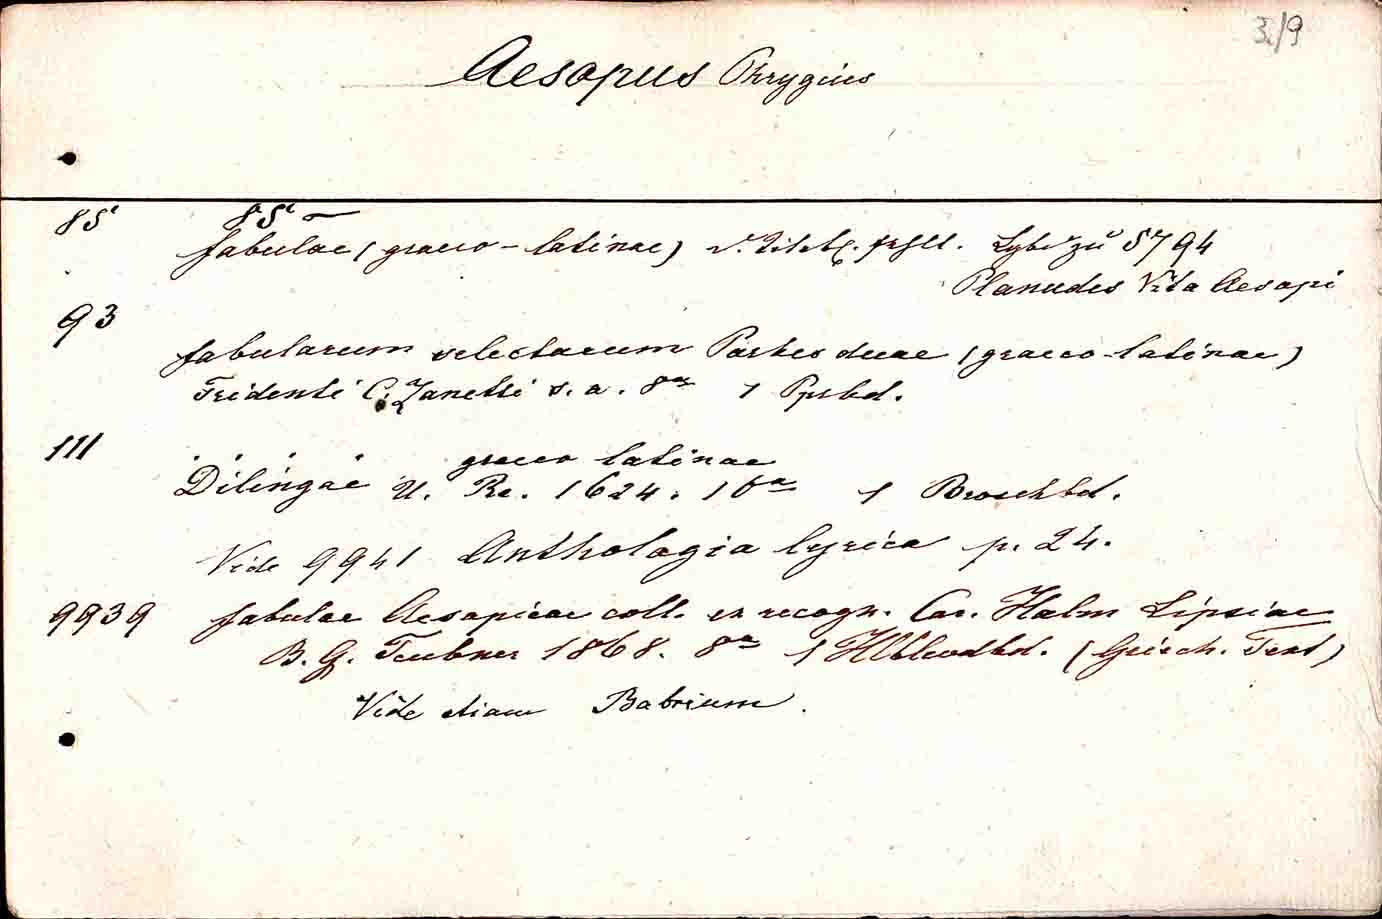 3/9
Aesopus Phrygius
85 85 —
fabulae (graeco-latinae) d. Titelbl. fehlt. zu 5794
Planudes Vita Aesopi
93
fabularum selectarum Partes duae (graeco-latinae)
Tridenti C. Zanetti s. a. 8° 1 Ppbd.
111
" " " " graeco latinae
Dilingae U. Re. 1624. 16° 1 Broschbd.
Vide 9941 Anthologia lyrica p. 24.
9939 fabulae Aesopicae coll. ex recogn. Car. Halm Lipsiae
B. G. Teubner 1868. 8° 1 Hlblwdbd. (Griech. Text)
Vide etiam Babrium.